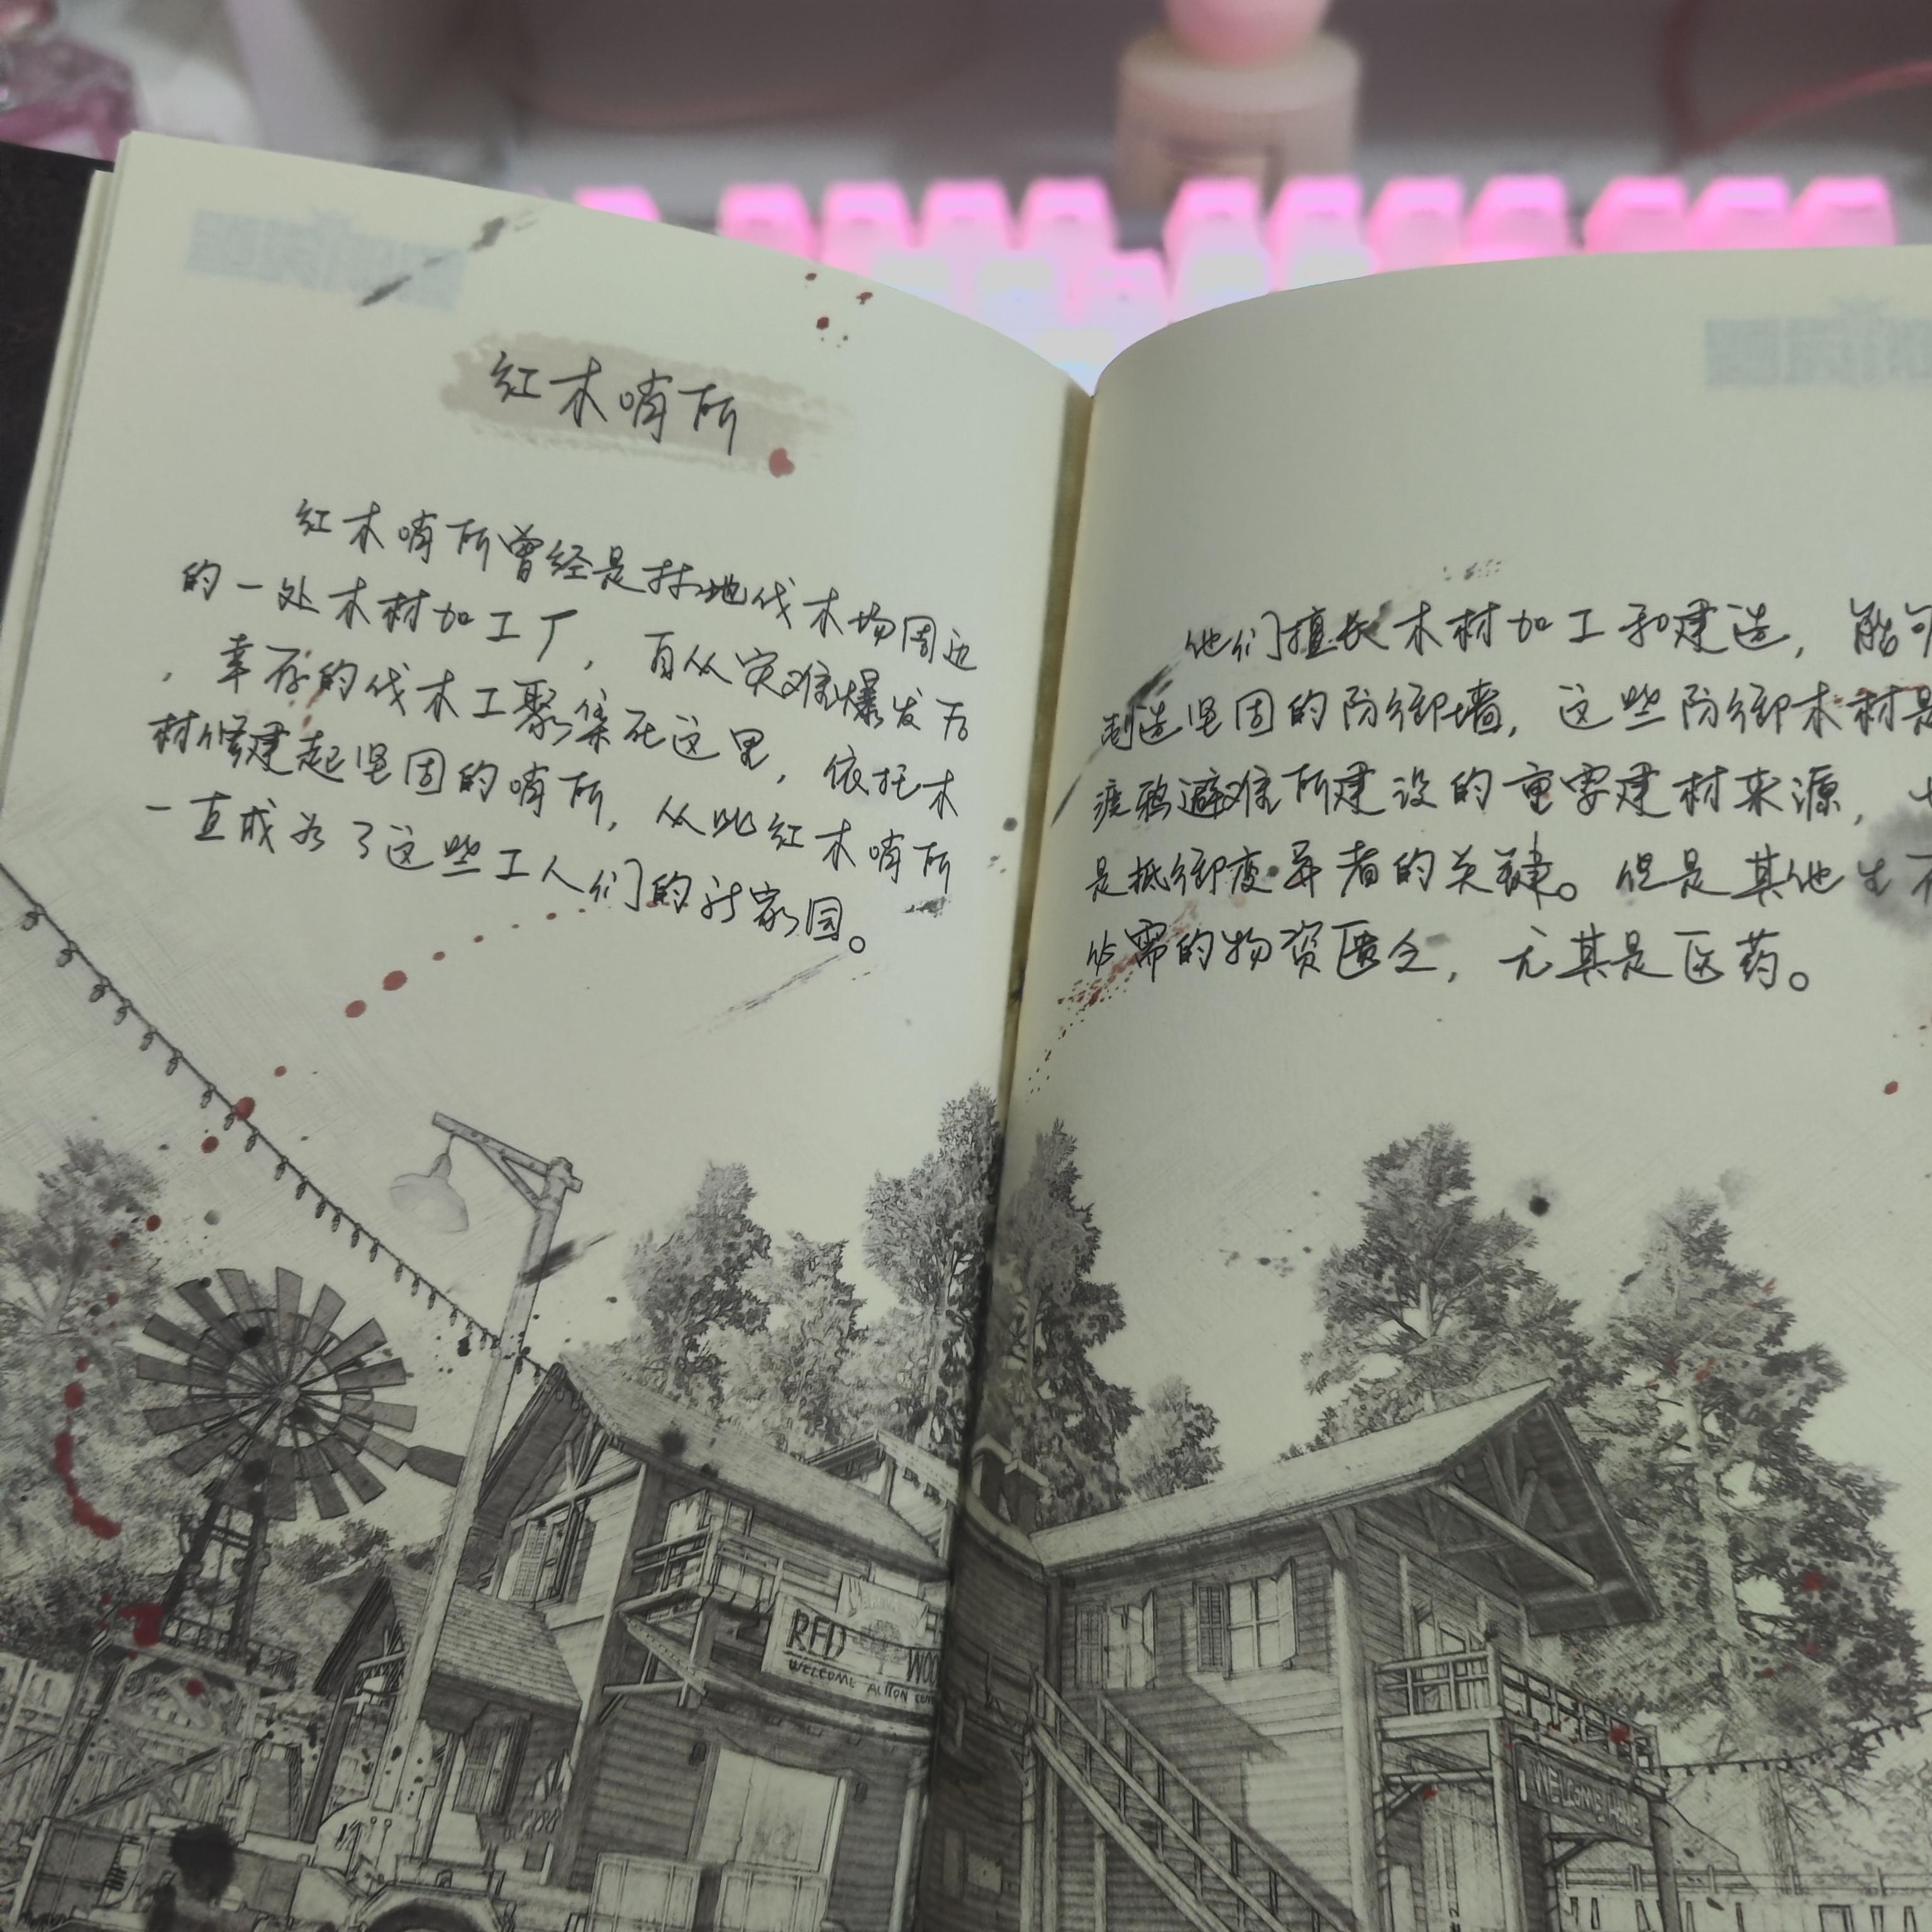 红木哨所
红木哨所曾经是林地伐木场周边
的一处木材加工厂，自从灾难爆发后
，幸存的伐木工聚集在这里，依托木
材修建起坚固的哨所，从此红木哨所
一直成为了这些工人们的新家园。
他们擅长木材加工和建造，能够
制造坚固的防御墙，这些防御木材是
渡鸦避难所建设的重要建材来源，也
是抵御变异者的关键。但是其他生存
必需的物资匮乏，尤其是医药。
RED WOO
WELCOME
WELCOME